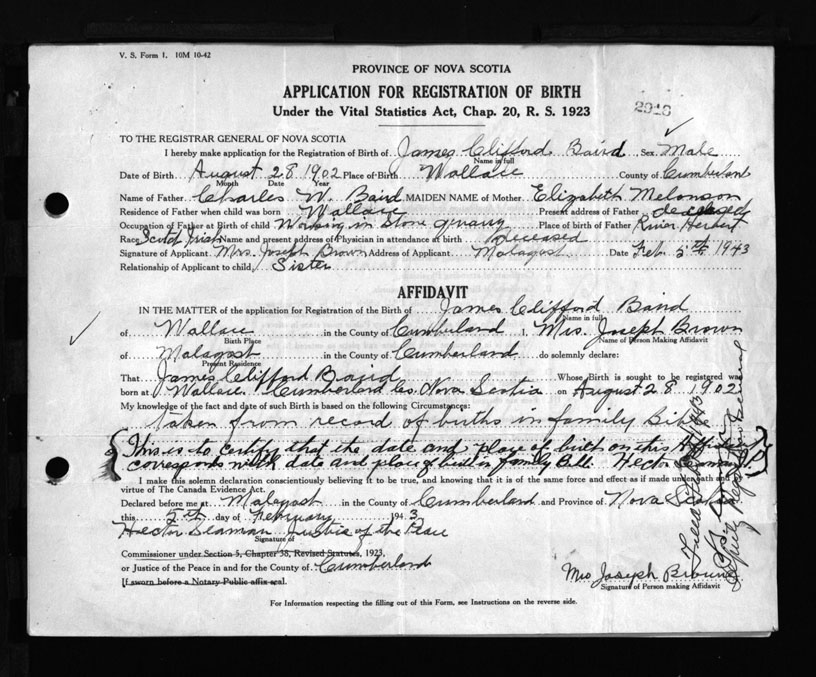 V. S. Form 1. 10M 10-42
PROVINCE OF NOVA SCOTIA
APPLICATION FOR REGISTRATION OF BIRTH
Under the Vital Statistics Act, Chap. 20, R. S. 1923
2910
TO THE REGISTRAR GENERAL OF NOVA SCOTIA
I hereby make application for the Registration of Birth of James Clifford Baird Sex Male
Name in full
Date of Birth August 28 1902 Place of Birth Wallace County of Cumberland
Month Date Year
Name of Father Charles W. Baird MAIDEN NAME of Mother Elizabeth Melonson
Residence of Father when child was born Wallace Present address of Father deceased
Occupation of Father at Birth of child Working in Stone quarry Place of birth of Father River Herbert
Race Scotch Irish Name and present address of Physician in attendance at birth deceased
Signature of Applicant Mrs. Joseph Brown Address of Applicant Malagast Date Feb. 5th 1943
Relationship of Applicant to child Sister
AFFIDAVIT
IN THE MATTER of the application for Registration of the Birth of James Clifford Baird
Name in full
of Wallace in the County of Cumberland I, Mrs. Joseph Brown
Birth Place Name of Person Making Affidavit
of Malagast in the County of Cumberland do solemnly declare:
Present Residence
That James Clifford Baird Whose Birth is sought to be registered was
born at Wallace Cumberland Co. Nova Scotia on August 28 1902
My knowledge of the fact and date of such Birth is based on the following Circumstances:
taken from record of births in family Bible
This is to certify that the date and place of birth on this
corresponds with date and place of birth in family Bible. Hector Seaman J.P.
I make this solemn declaration conscientiously believing it to be true, and knowing that it is of the same force and effect as if made under oath and
virtue of The Canada Evidence Act.
Declared before me at Malagast in the County of Cumberland and Province of Nova Scotia
this 5th day of February 1943
Hector Seaman Justis of the Peace
Signature of
Commissioner under Section 5, Chapter 38, Revised Statutes, 1923,
or Justice of the Peace in and for the County of Cumberland
If sworn before a Notary Public affix seal.
Mrs Joseph Brown
Signature of Person making Affidavit
For Information respecting the filling out of this Form, see Instructions on the reverse side.